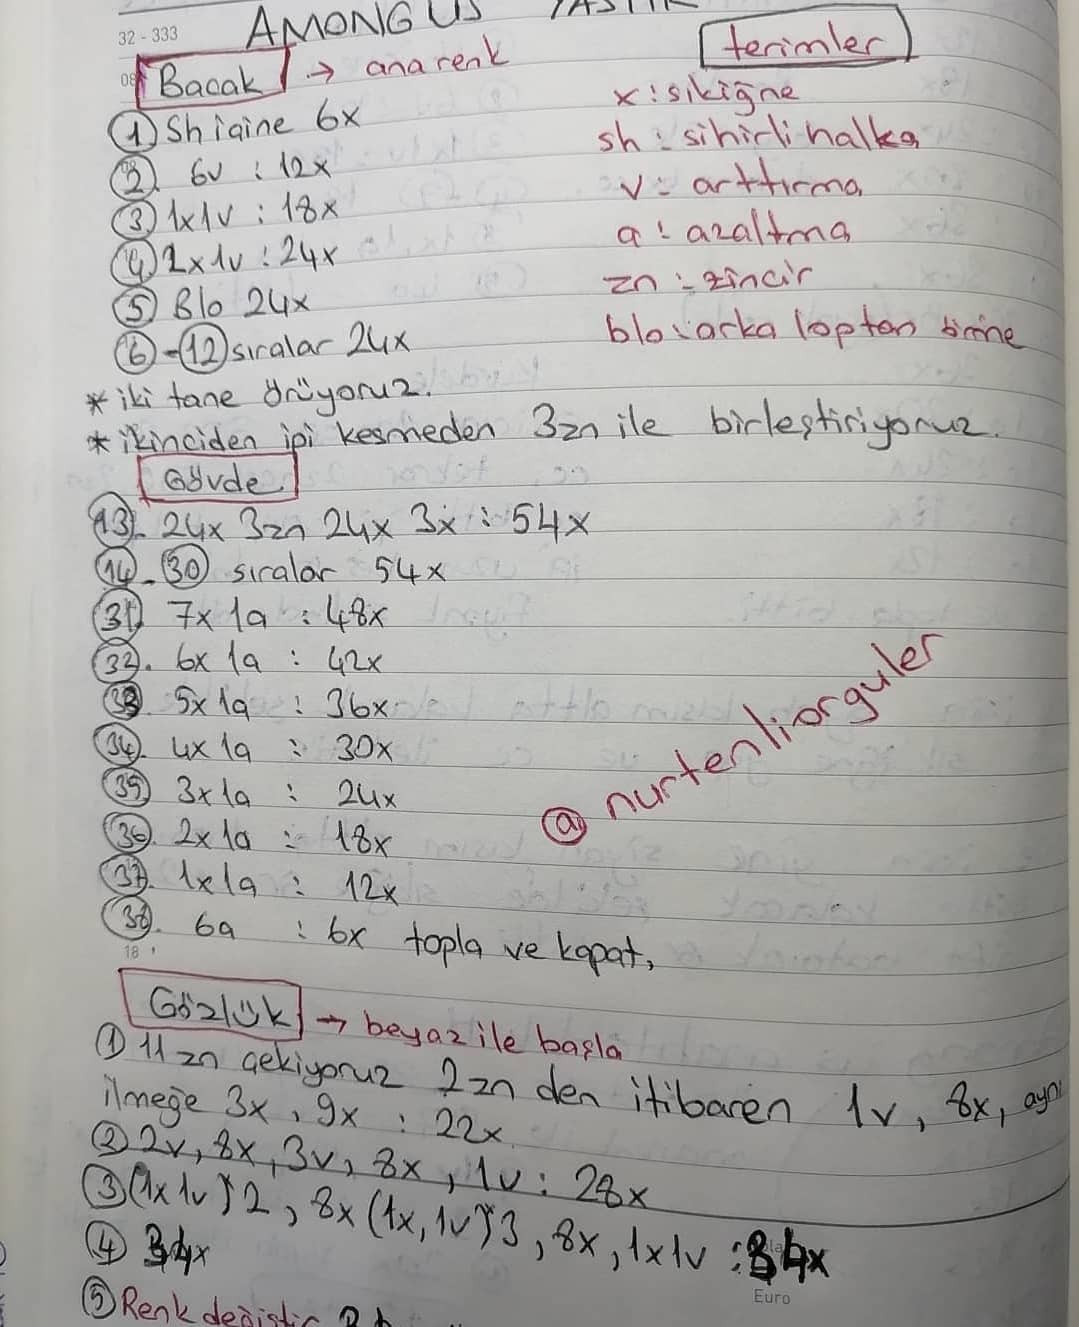 32-333
AMONG US YASTIK
08 Bacak → ana renk
terimler
x: sıkiğne
sh: sihirli halka
v: arttırma
a: azaltma
zn: zincir
blo: arka loptan birine
① Sh içine 6x
② 6v : 12x
③ 1x1v : 18x
④ 2x1v : 24x
⑤ Blo 24x
⑥-⑫ sıralar 24x
* iki tane örüyoruz.
* ikinciden ipi kesmeden 3zn ile birleştiriyoruz.
Gövde
⑬. 24x 3zn 24x 3x : 54x
⑭-㉚ sıralar 54x
㉛ 7x 1a : 48x
㉜. 6x 1a : 42x
㉝. 5x 1a : 36x
㉞. 4x 1a : 30x
㉟ 3x 1a : 24x
㊱. 2x 1a : 18x
㊲. 1x1a : 12x
㊳. 6a : 6x topla ve kapat,
@nurtenliorguler
18
Gözlük → beyaz ile başla
① 11 zn çekiyoruz 2zn den itibaren 1v, 8x, aynı
ilmeğe 3x, 9x : 22x
② 2v, 8x, 3v, 8x, 1v : 28x
③ (1x 1v)*2, 8x (1x, 1v)*3, 8x, 1x1v : 34x
④ 34x
Euro
⑤ Renk değiştir